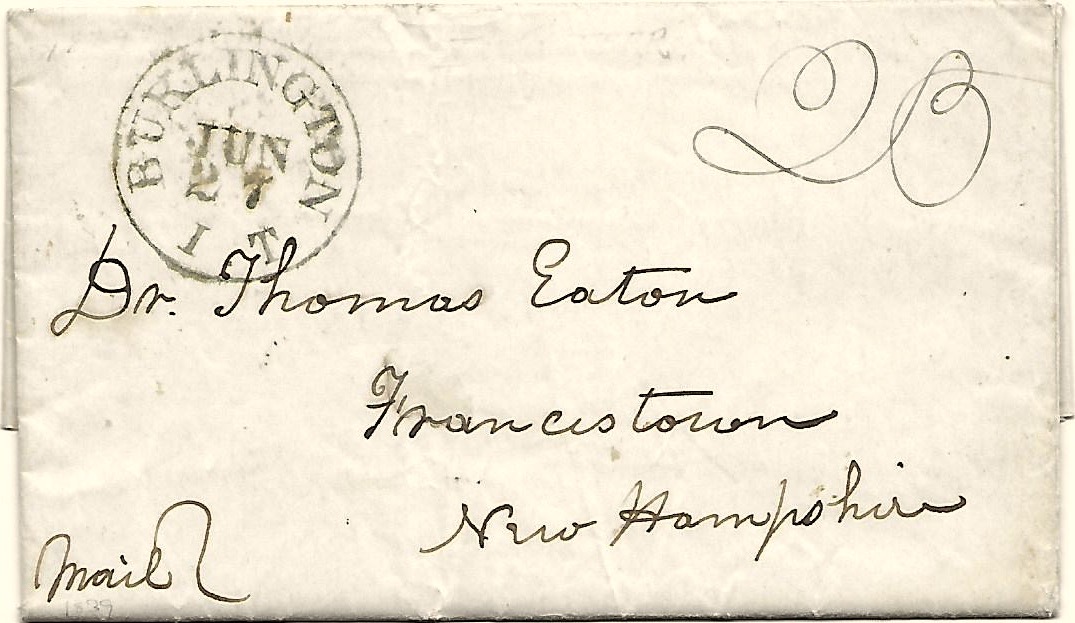 BURLINGTON
JUN
27
I T
25
Dr. Thomas Eaton
Francistown
New Hampshire
Mail